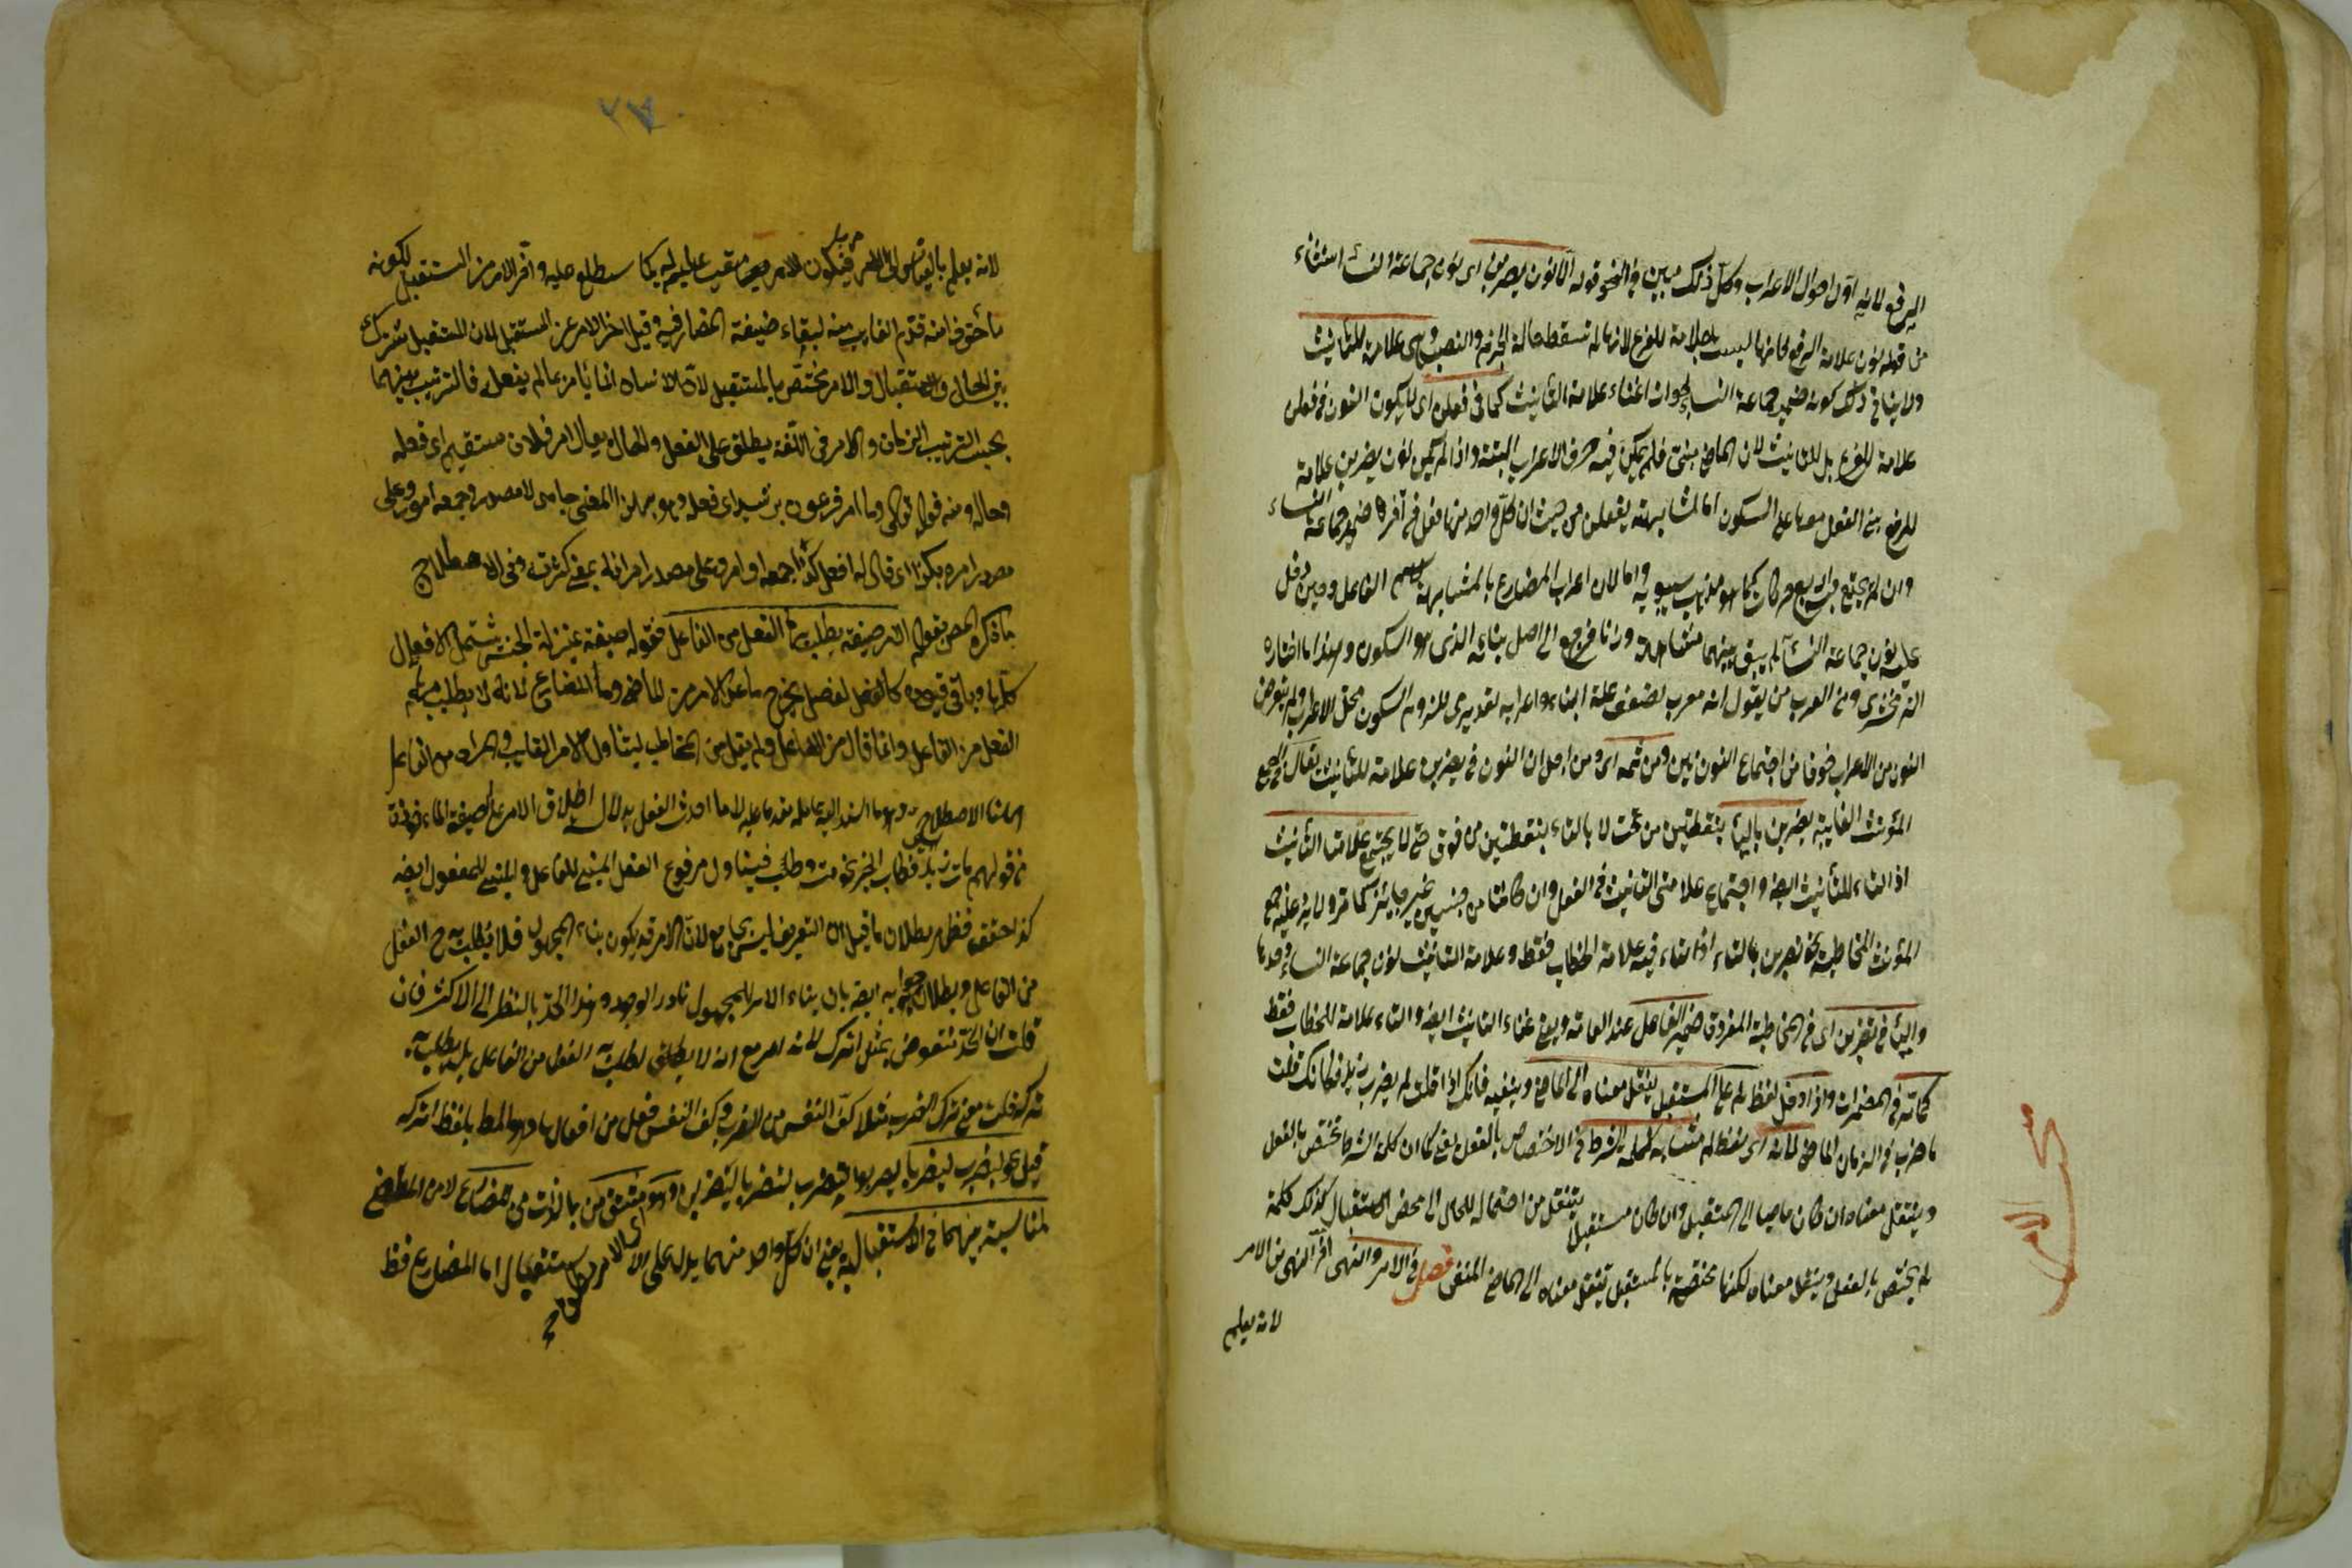 الرفع لانه اول احوال الاعراب وكل ذلك مبين في النحو قوله الا نون يضربن اى نون جماعة النساء استثناء
من قوله نون علامة الرفع فانها ليست بعلامة للرفع لانها لم تسقط حالة الجزم والنصب وهى علامة للتأنيث
ولا ينافى ذلك كونه ضمير جماعة النساء لجواز اغناء علامة التأنيث كما فى فعلن اى كما يكون النون فى فعلن
علامة للرفع بل للتانيث لان الماضى مبنى فلم يكن فيه حرف الاعراب البتة واذا لم يكن نون يضربن علامة
للرفع بنى الفعل معها على السكون اما لمشابهته بفعلن من حيث ان كل واحد منهما فعل فى آخرها ضمير جماعة النساء
وان لم يجتمع اربع حركات كما هو مذهب سيبويه واما لان اعراب المضارع بالمشابهة باسم الفاعل وحين دخل
عليه نون جماعة النساء لم يبق بينهما مشابهة وزنا فرجع الى اصل بنائه الذى هو السكون وهذا ما اختاره
الزمخشرى ومن العرب من يقول انه معرب لضعف علة البناء واعرابه تقديرى للزوم السكون محل الاعراب ولم يتعرض
النون من الاعراب خوفا من اجتماع النونين ومن ثمه اى ومن اجل ان النون فى يضربن علامة للتأنيث يقال فى جمع
المؤنث الغايبة يضربن بالياء بنقطتين من تحت لا بالتاء بنقطتين من فوق حتى لا يجتمع علامتا التأنيث
اذ التاء للتأنيث ايضا واجتماع علامتى التانيث فى الفعل وان كانتا من جنسين غير جايز كما مر ولا يرد عليه جمع
المؤنث المخاطبة نحو تضربن بالتاء اذ التاء فيه علامة الخطاب فقط وعلامة التانيث نون جماعة النساء وحدها
والياء فى تضربين اى فى المخاطبة المفردة ضمير الفاعل عند العامة وفيه غناء التانيث ايضا والتاء علامة للخطاب فقط
كما مر فى المضمرات واذا دخل لفظ لم على المستقبل ينقل معناه الى الماضى وينفيه فانك اذا قلت لم يضرب زيد فكانك قلت
ما ضرب فى الزمان الماضى لانه اى لفظ لم مشابه لكلمة الشرط فى الاختصاص بالفعل يعنى كما ان كلمة الشرط تختص بالفعل
وينتقل معناه ان كان ماضيا الى المستقبل وان كان مستقبلا ينتقل من احتمال الحال الى محض الاستقبال كذلك كلمة
لم يختص بالفعل وينقل معناه لكنها مختصة بالمستقبل تنقل معناه الى الماضى المنفى فصل فى الامر والنهى اخر النهى عن الامر
لانه يعلم
٢٧
لانه يعلم بالقياس الى الامر فيكون للامر تعقيب عليه كما ستطلع عليه واخر الامر من المستقبل لكونه
مأخوذا منه قدم الغايب منه لبقاء صيغة المضارع فيه وقيل اخر الامر عن المستقبل لان المستقبل مشترك
بين الحال والاستقبال والامر مختص بالمستقبل لان الانسان انما يأمر بما لم يفعل فالترتيب بينهما
بحسب ترتيب الزمان والامر فى اللغة يطلق على الفعل والحال يقال امر فلان مستقيم اى فعله
وحاله ومنه قوله تعالى وما امر فرعون برشيد اى فعله وهو بهذا المعنى جامد لا مصدر وجمعه امور وعلى
مصدر امره بكذا اى قال له افعل كذا وجمعه اوامر وعلى مصدر امر افلة بمعنى كثرت وفى الاصطلاح
ما ذكره المص بقوله الامر صيغة يطلب بها الفعل من الفاعل فقوله صيغة بمنزلة الجنس تشتمل الافعال
كلها وباقى قيوده كالفصل لفصل يخرج ما عدا الامر من الماضى والمضارع لانه لا يطلب بهم
الفعل من الفاعل وانما قال من الفاعل ولم يقل من المخاطب ليتناول الامر الغايب والمراد من الفاعل
ههنا الاصطلاحى وهو ما اسند اليه عامله مقدما عليه لا ما احدث الفعل بدلالة اطلاق الامر على صيغة
من قولهم مات زيد فطاب الخبز نحو مت وطب فيتناول مرفوع الفعل المبنى للفاعل والمبنى للمفعول ايضا
كذا حقق فظهر بطلان ما قيل ان التعريف ليس بجامع لان الامر قد يكون بناء المجهول فلا يطلب به ح الفعل
من الفاعل وبطلان جوابه ايضا بان بناء الامر للمجهول نادر الوجود وهذا الحد بالنظر الى الاكثر فان
قلت ان الحد منقوض بمثل اترك لانه امر مع انه لا يطلب به الفعل من الفاعل بل يطلب به
تركه قلت معنى ترك الضرب مثلا كف النفس من الضرب وكف النفس فعل من افعالها وهو المط بلفظ اتركه
قيل نحو ليضرب ليضربا ليضربوا لتضرب لتضربا ليضربن وهو مشتق من بالذات من المضارع لا من الماضى
لمناسبة بينهما فى الاستقبالية يعنى ان كل واحد منهما يدل على الاستقبال اما المضارع فظ